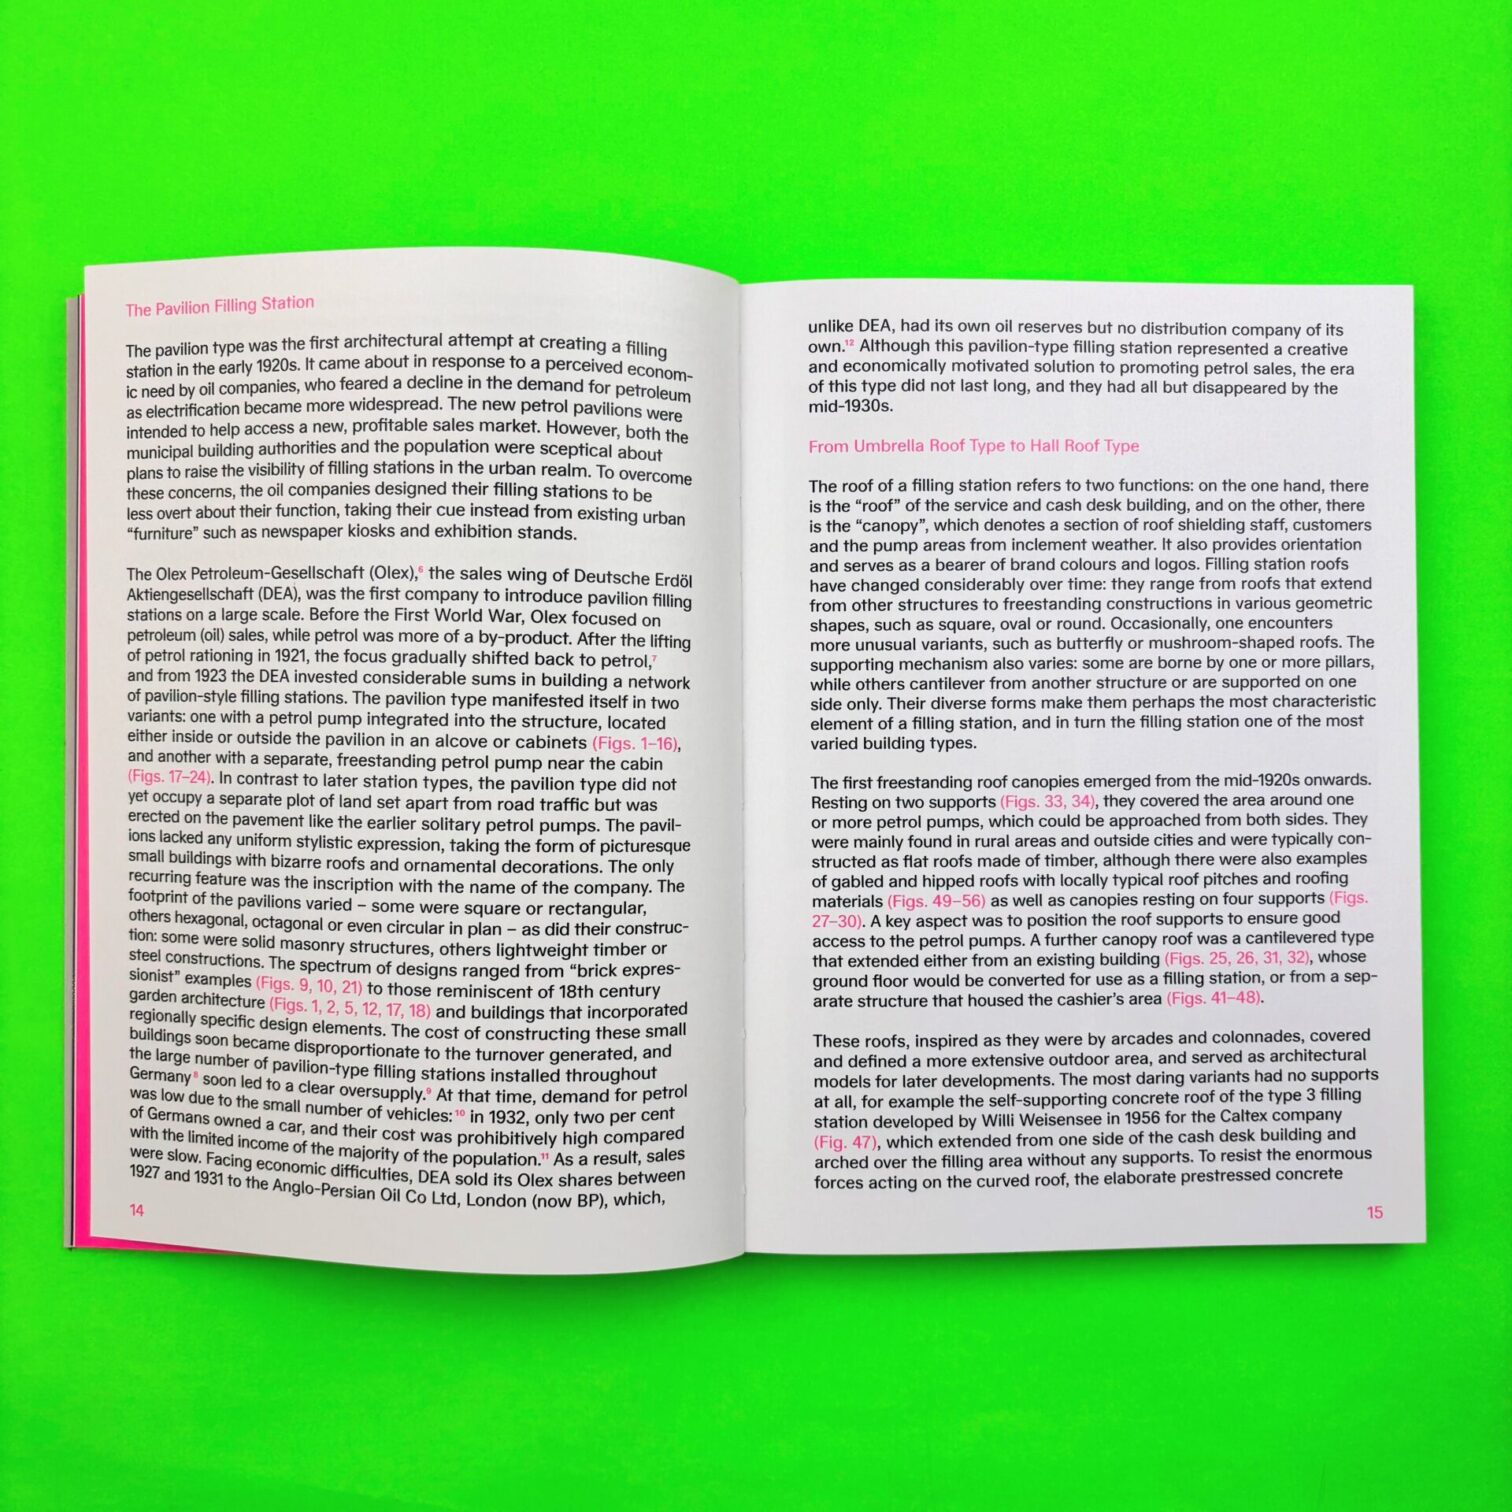 The Pavilion Filling Station
The pavilion type was the first architectural attempt at creating a filling
station in the early 1920s. It came about in response to a perceived econom-
ic need by oil companies, who feared a decline in the demand for petroleum
as electrification became more widespread. The new petrol pavilions were
intended to help access a new, profitable sales market. However, both the
municipal building authorities and the population were sceptical about
plans to raise the visibility of filling stations in the urban realm. To overcome
these concerns, the oil companies designed their filling stations to be
less overt about their function, taking their cue instead from existing urban
“furniture” such as newspaper kiosks and exhibition stands.
The Olex Petroleum-Gesellschaft (Olex),⁶ the sales wing of Deutsche Erdöl
Aktiengesellschaft (DEA), was the first company to introduce pavilion filling
stations on a large scale. Before the First World War, Olex focused on
petroleum (oil) sales, while petrol was more of a by-product. After the lifting
of petrol rationing in 1921, the focus gradually shifted back to petrol,⁷
and from 1923 the DEA invested considerable sums in building a network
of pavilion-style filling stations. The pavilion type manifested itself in two
variants: one with a petrol pump integrated into the structure, located
either inside or outside the pavilion in an alcove or cabinets (Figs. 1–16),
and another with a separate, freestanding petrol pump near the cabin
(Figs. 17–24). In contrast to later station types, the pavilion type did not
yet occupy a separate plot of land set apart from road traffic but was
erected on the pavement like the earlier solitary petrol pumps. The pavil-
ions lacked any uniform stylistic expression, taking the form of picturesque
small buildings with bizarre roofs and ornamental decorations. The only
recurring feature was the inscription with the name of the company. The
footprint of the pavilions varied – some were square or rectangular,
others hexagonal, octagonal or even circular in plan – as did their construc-
tion: some were solid masonry structures, others lightweight timber or
steel constructions. The spectrum of designs ranged from “brick expres-
sionist” examples (Figs. 9, 10, 21) to those reminiscent of 18th century
garden architecture (Figs. 1, 2, 5, 12, 17, 18) and buildings that incorporated
regionally specific design elements. The cost of constructing these small
buildings soon became disproportionate to the turnover generated, and
the large number of pavilion-type filling stations installed throughout
Germany⁸ soon led to a clear oversupply.⁹ At that time, demand for petrol
was low due to the small number of vehicles:¹⁰ in 1932, only two per cent
of Germans owned a car, and their cost was prohibitively high compared
with the limited income of the majority of the population.¹¹ As a result, sales
were slow. Facing economic difficulties, DEA sold its Olex shares between
1927 and 1931 to the Anglo-Persian Oil Co Ltd, London (now BP), which,
14
unlike DEA, had its own oil reserves but no distribution company of its
own.¹² Although this pavilion-type filling station represented a creative
and economically motivated solution to promoting petrol sales, the era
of this type did not last long, and they had all but disappeared by the
mid-1930s.
From Umbrella Roof Type to Hall Roof Type
The roof of a filling station refers to two functions: on the one hand, there
is the “roof” of the service and cash desk building, and on the other, there
is the “canopy”, which denotes a section of roof shielding staff, customers
and the pump areas from inclement weather. It also provides orientation
and serves as a bearer of brand colours and logos. Filling station roofs
have changed considerably over time: they range from roofs that extend
from other structures to freestanding constructions in various geometric
shapes, such as square, oval or round. Occasionally, one encounters
more unusual variants, such as butterfly or mushroom-shaped roofs. The
supporting mechanism also varies: some are borne by one or more pillars,
while others cantilever from another structure or are supported on one
side only. Their diverse forms make them perhaps the most characteristic
element of a filling station, and in turn the filling station one of the most
varied building types.
The first freestanding roof canopies emerged from the mid-1920s onwards.
Resting on two supports (Figs. 33, 34), they covered the area around one
or more petrol pumps, which could be approached from both sides. They
were mainly found in rural areas and outside cities and were typically con-
structed as flat roofs made of timber, although there were also examples
of gabled and hipped roofs with locally typical roof pitches and roofing
materials (Figs. 49–56) as well as canopies resting on four supports (Figs.
27–30). A key aspect was to position the roof supports to ensure good
access to the petrol pumps. A further canopy roof was a cantilevered type
that extended either from an existing building (Figs. 25, 26, 31, 32), whose
ground floor would be converted for use as a filling station, or from a sep-
arate structure that housed the cashier’s area (Figs. 41–48).
These roofs, inspired as they were by arcades and colonnades, covered
and defined a more extensive outdoor area, and served as architectural
models for later developments. The most daring variants had no supports
at all, for example the self-supporting concrete roof of the type 3 filling
station developed by Willi Weisensee in 1956 for the Caltex company
(Fig. 47), which extended from one side of the cash desk building and
arched over the filling area without any supports. To resist the enormous
forces acting on the curved roof, the elaborate prestressed concrete
15